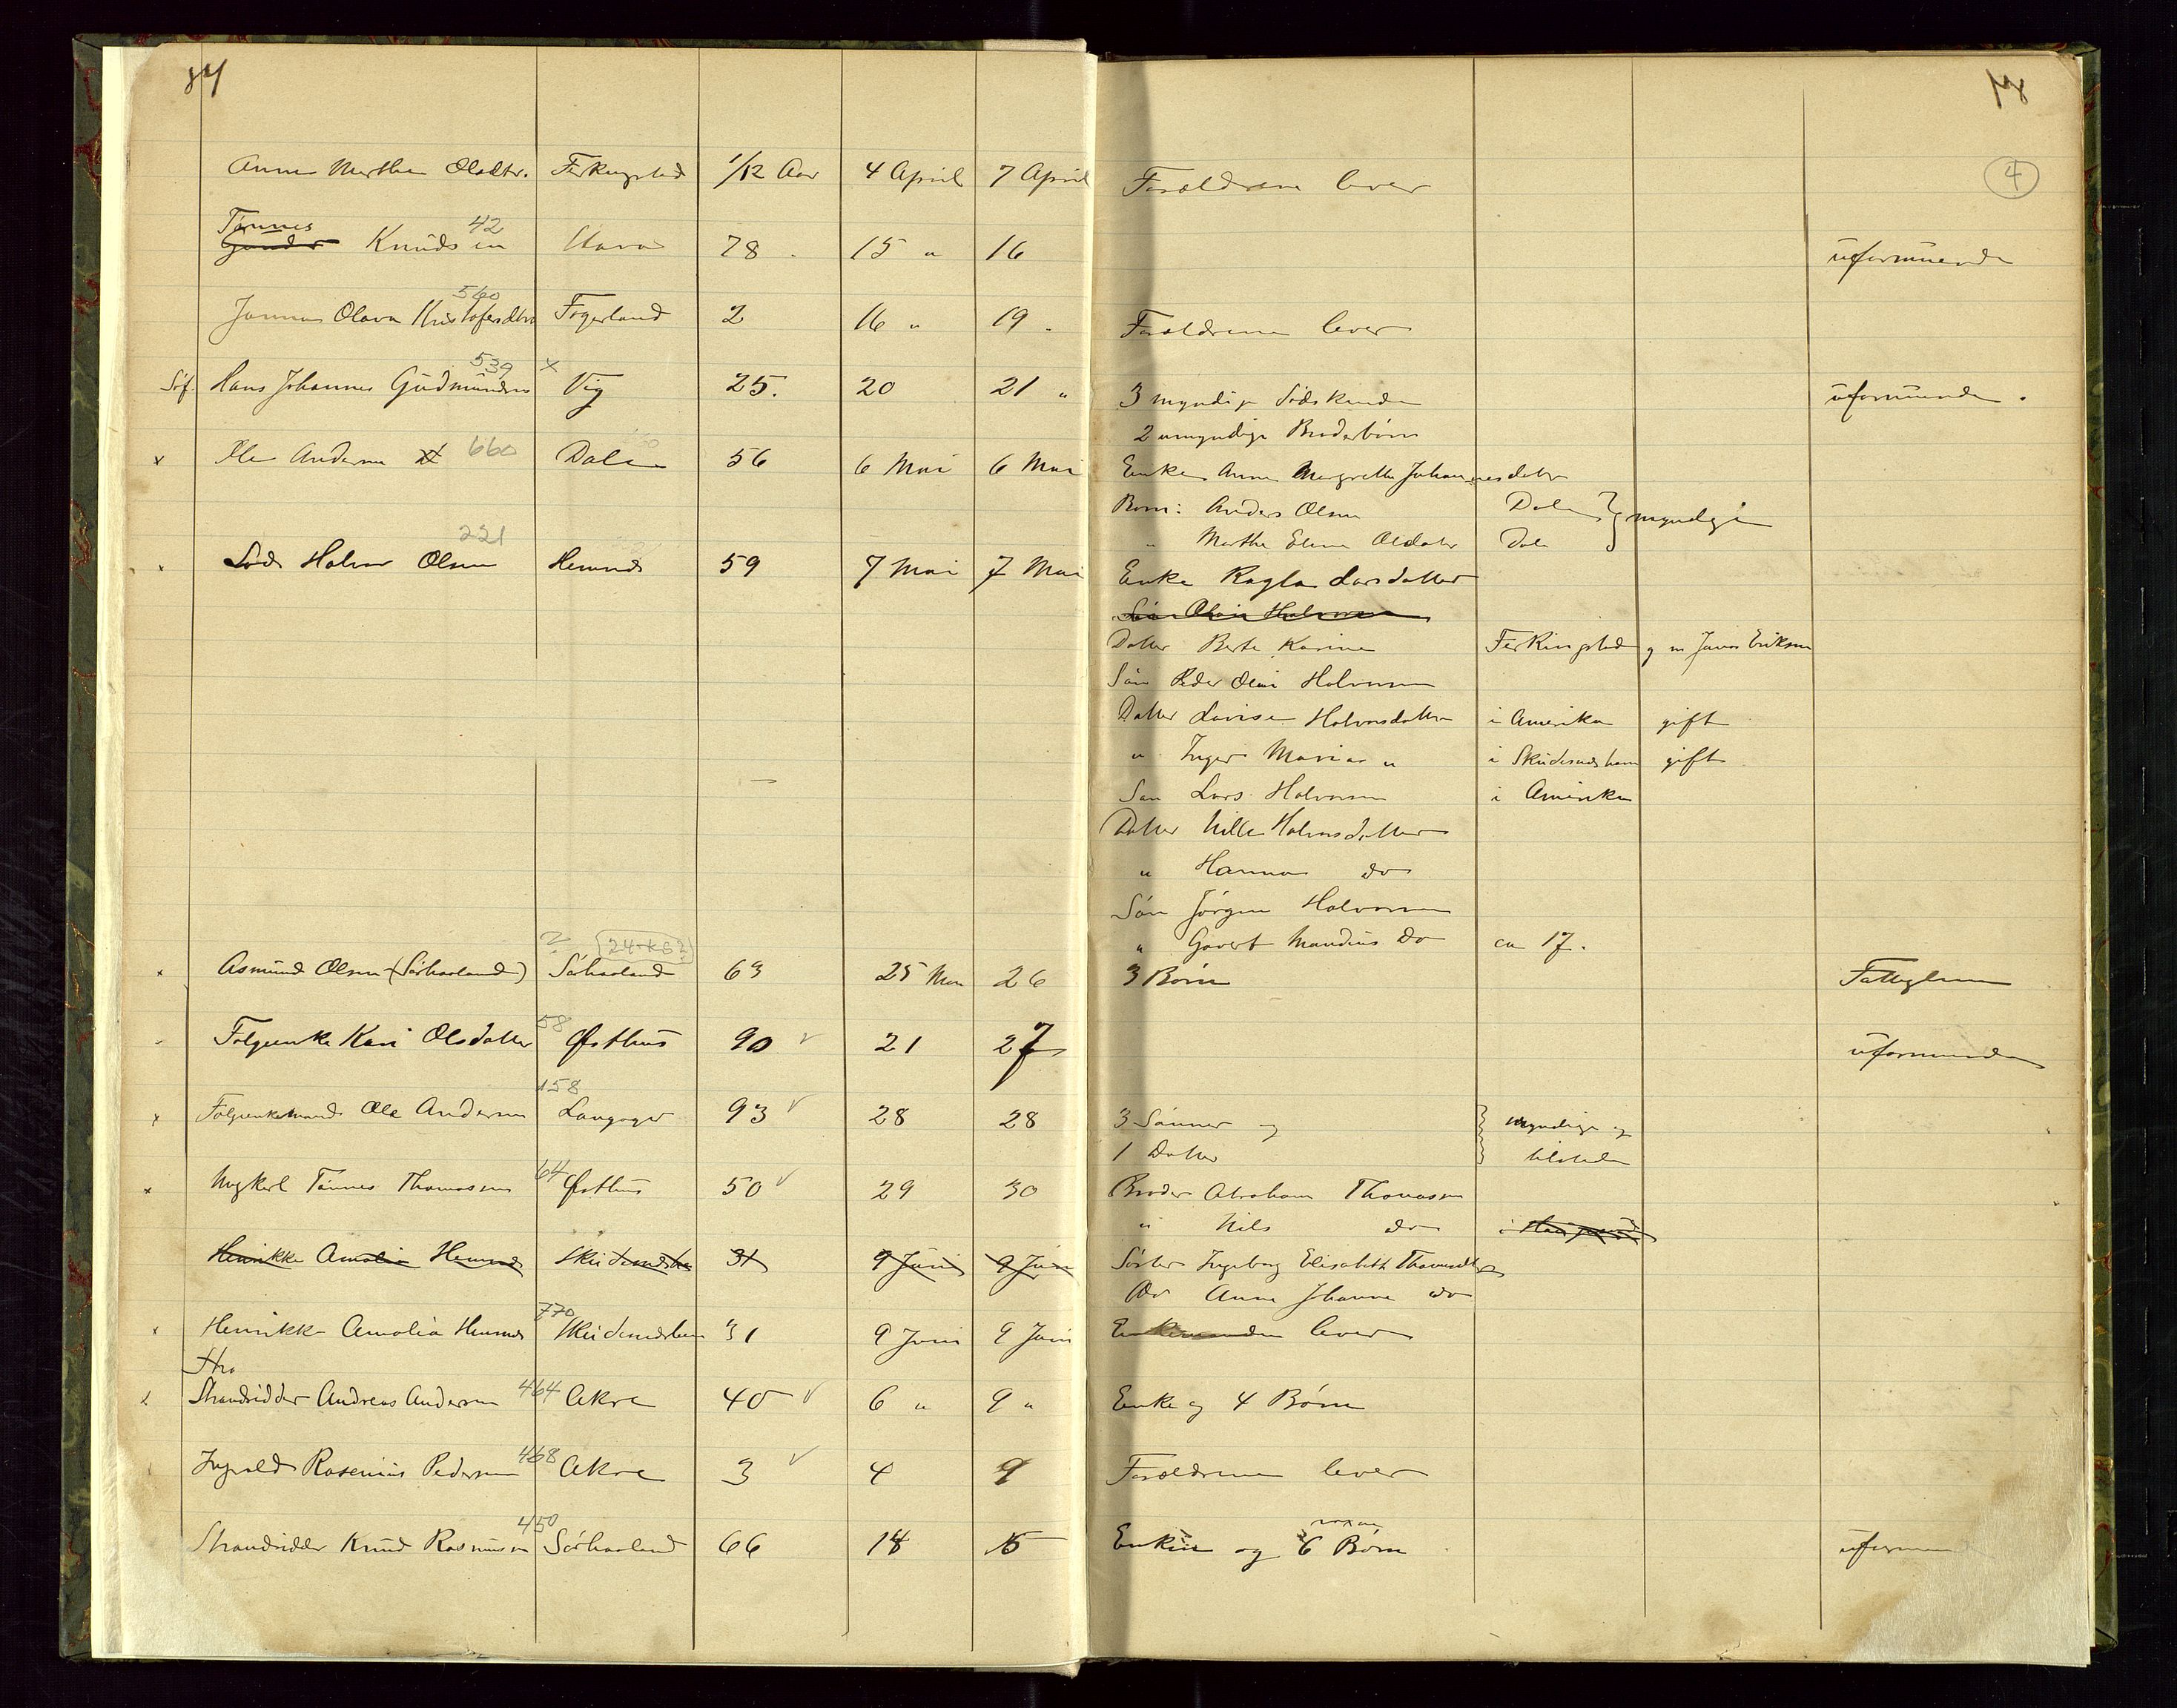 84 18
4
Anne Marthe Olsdtr. Ferkingstad 1/12 Aar 4 April 7 April Forældrene lever
Tønnes 42
Gunder Knudsen Stava 78. 15 " 16 uformuende
560
Janna Olava Kristofersdtr Fogerland 2 16 " 19. Forældrene lever
539 x
Søf. Hans Johannes Gudmundsen Vig 25. 20 21 " 3 myndige Södskende uformuende.
2 umyndige Broderbörn
x Ole Andersen 660 Dale 56 6 Mai 6 Mai Enke Anne Margrethe Johannesdatr
Born: Anders Olsen Dale } myndige
" Marthe Eline Olsdatr Dale
221
x Lods Halvor Olsen Hemnes 59 7 Mai 7 Mai Enke Ragla Larsdatter
Sön Olai Halvorsen
Datter Berte Karine Ferkingstad g m Jonas Eriksen
Sön Peder Olai Halvorsen
Datter Lovise Halvorsdatter i Amerika gift
" Inger Maria " i Skudesneshavn gift
Sön Lars Halvorsen i Amerika
Datter Nille Halvorsdatter
" Hanna do
Sön Jörgen Halvorsen
" Govert Mandius Do ca 17.
? 24-k6?
x Asmund Olsen (Sörhaaland) Sörhaaland 63 25 Mai 26 3 Börn Fattiglem
58
Folgeenke Kari Olsdatter Østhus 90 21 27 uformuende
158
x Folgeenkemand Ole Andersen Langager 93 28 28 3 Sönner og } myndige og
1 Datter tilstede
64
x Ungkarl Tönnes Thomassen Østhus 50 29 30 Broder Abraham Thomassen
" Nils do i Haugesund
Henrikke Amalia Hemnes Skudesneshavn 31 9 Juni 9 Juni Söster Ingeborg Elisabeth Thomasdtr
Do Anna Johanne do
770
x Henrikke Amalia Hemnes Skudesneshavn 31 9 Juni 9 Juni Enkemanden lever
x Strandsidder Andreas Andersen 464 Akre 40 6 " 9 " Enke og 4 Börn
Ingvald Rosenius Pedersen 468 Akre 3 4 9 Forældrene lever
450
Strandsidder Knud Rasmussen Sörhaaland 66 14 15 Enken og 6 Börn